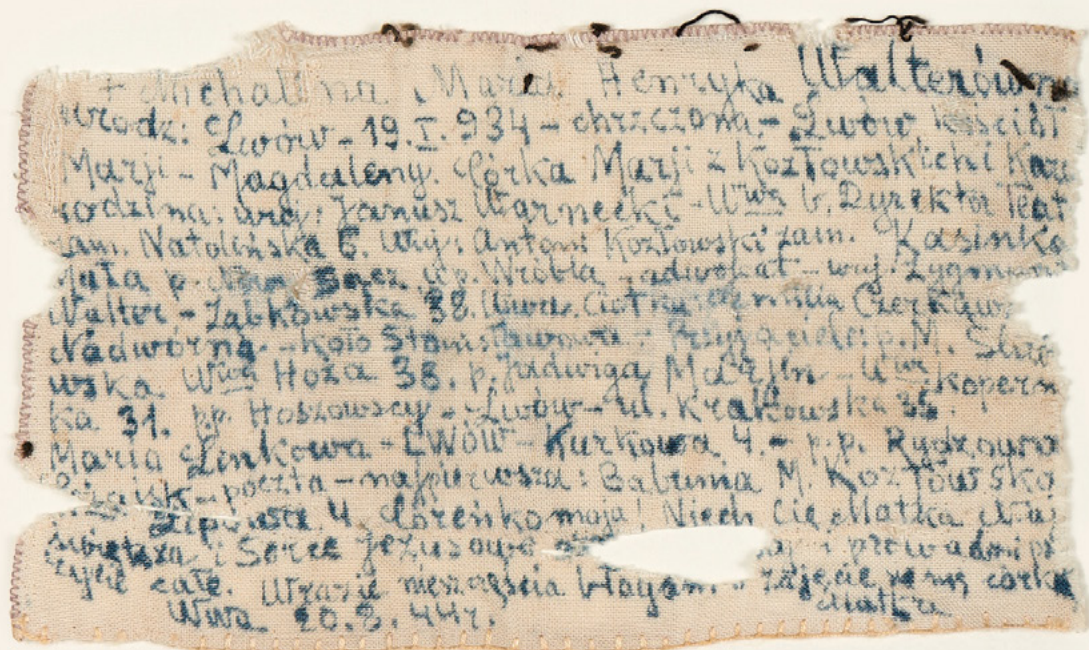 + Michalina Maria Henryka Walterówna
urodz: Lwów - 19.I.934 - chrzczona - Lwów kościół
Marji - Magdaleny. Córka Marji z Kozłowskich i Kaz
rodzina: wuj: Janusz Warnecki - Wwa b. Dyrektor Teat
zam. Natolińska 6. Wuj: Antoni Kozłowski zam. Kasinka
Mała p. Sącz p. Wróbla adwokat - wuj: Zygmunt
Walter - Ząbkowska 38. Wwa. Ciotka
Nadwórna - koło Stanisławowa - Przyjaciele: p. M.
wska Wwa Hoża 38. p. Jadwiga - Wwa Kopern
ka 31. p.p. Hoszowscy - Lwów - ul. Krakowska
Maria Linkowa - LWÓW - Kurkowa 4. - p.p.
- poczta - najpierwsza: Babunia M. Kozłowska
Lipowa 4 Córeńko moja! Niech Cię Matka Naj
świętsza i Serce Jezusowe prowadzi
życie całe. W razie nieszczęścia błagam o zajęcie się mą córką
Wwa 20.8.44r. Matka